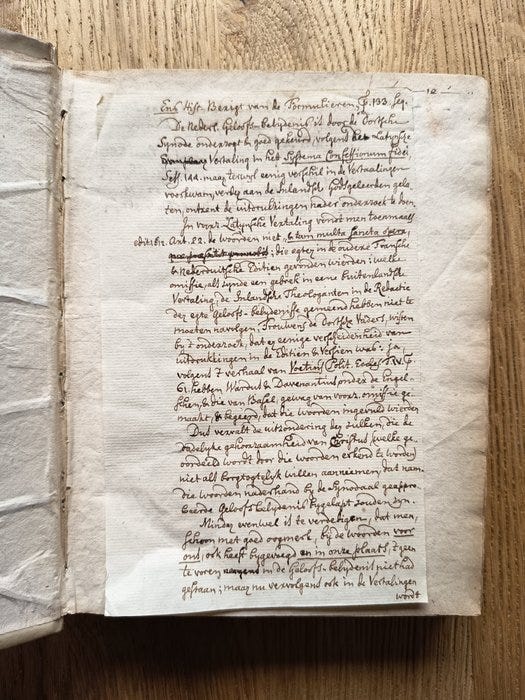 Ens Hist. Berigt van de Formulieren, p. 133. seq.
De Nederl. Geloofs-belydenis is door de Dortsche
Synode onderzogt & goed gekeurd, volgens de Latynsche
Vertaling in het Systema Confessionum Fidei,
Sess. 144. maar terwyl eenig verschil in de Vertaalingen
voorkwam, verbleef aan de Inlandsche Godsgeleerden gela
ten, omtrent de uitdrukkingen nader onderzoek te doen.
In voorz. Latynsche Vertaling vondt men toenmaals
edit. 1612. Art. 22. de woorden niet, & tam multa sancta opera,
quae praestitit pro nobis; die egter in de oudere Fransche
& Nederduitsche Editien gevonden wierden: welke
omissie, als synde een gebrek in eene buitenlandsche
Vertaling, de Inlandsche Theologanten in de Redactie
der egte Geloofs-belydenisse gemeend hebben niet te
moeten navolgen. Trouwens de Dortsche Vaders, wisten
by 't onderzoek, dat er eenige verscheidenheid van
uitdrukkingen in de Editien & Versien was: ja
volgens 't verhaal van Voetius Polit. Eccles. T. IV. p.
61. hebben Wardus & Davenantius onder de Engel-
schen, & die van Basel, gewag van voorz. omissie ge-
maakt, & begeerd, dat die woorden ingevuld wierden
Dus vervalt de uitzondering der zulken, die de
dadelyke gehoorzaamheid van Christus (welke ge-
oordeeld wordt door die woorden erkend te worden)
niet als borgtogtelyk willen aanneemen, dat nam.
die woorden naderhand by de Synodaal geappro-
beerde Geloofs-belydenis bygelapt zouden zyn.
Minder wenwel is te verdedigen, dat men,
schoon met goed oogmerk, by de woorden voor
ons, ook heeft bygevoegd en in onze plaats, 't geen
te voren nergens in de Geloofs-belydenis niet had
gestaan; maar nu vervolgens ook in de Vertalingen
wordt